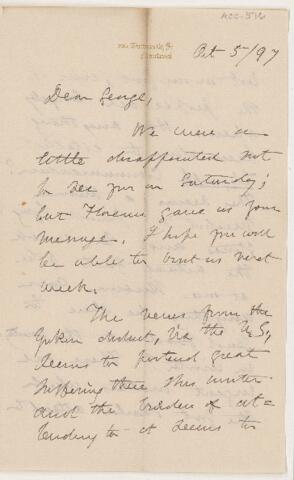 ACC-516
Oct 5/97
Dear George,
We were a
little disappointed not
to see you on Saturday;
but Florence gave us your
message. I hope you will
be able to visit us next
week.
The news from the
Yukon district, via the U.S.,
seems to portend great
suffering there this winter
and the burden of at=
tending to it seems to